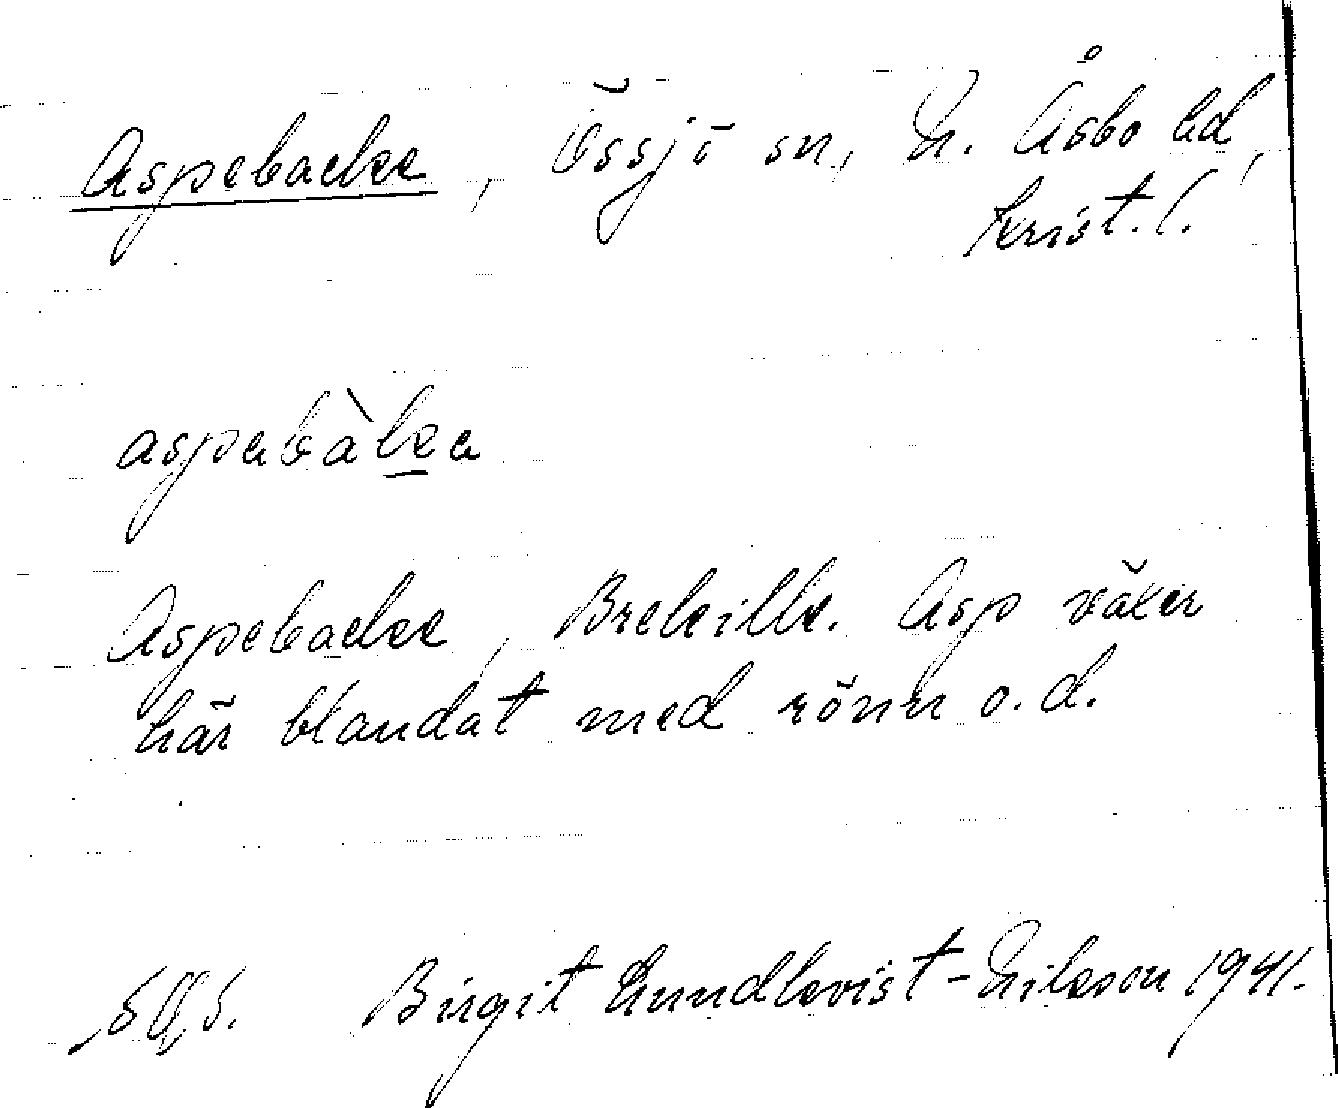 Aspebacke, Össjö sn, N. Åsbo hd,
Krist. l.
aspabàka
Aspebacke, Breleille. Asp växer
här blandat med rönn o.d.
Birgit Lundkvist-Nilsson 1941.